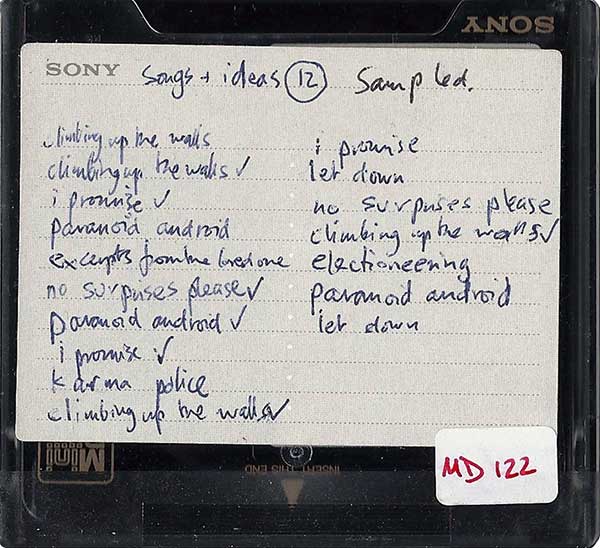 SONY
SONY songs + ideas 12 Sampled.
climbing up the walls
climbing up the walls ✓
i promise ✓
paranoid android
excerpts from the loved one
no surprises please ✓
paranoid android ✓
i promise ✓
karma police
climbing up the walls ✓
i promise
let down
no surprises please
climbing up the walls ✓
electioneering
paranoid android
let down
Mini
INSERT THIS END
MD 122